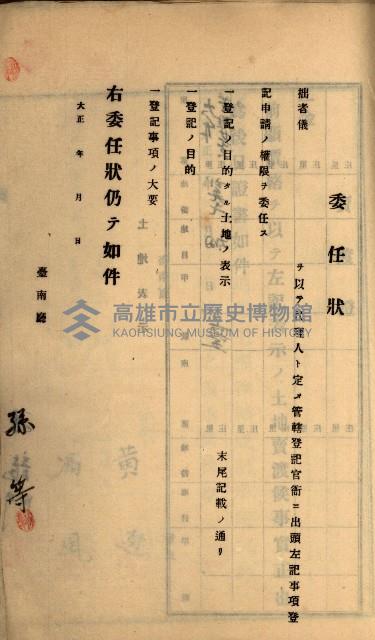 委任狀
拙者儀
ヲ以テ代理人ト定メ管轄登記官衙ニ出頭左記事項登
記申請ノ權限ヲ委任ス
一登記ノ目的タル土地ノ表示
末尾記載ノ通リ
一登記ノ目的
一登記事項ノ大要
右委任狀仍テ如件
大正 年 月 日
臺南廳
孫 等
高雄市立歷史博物館
KAOHSIUNG MUSEUM OF HISTORY